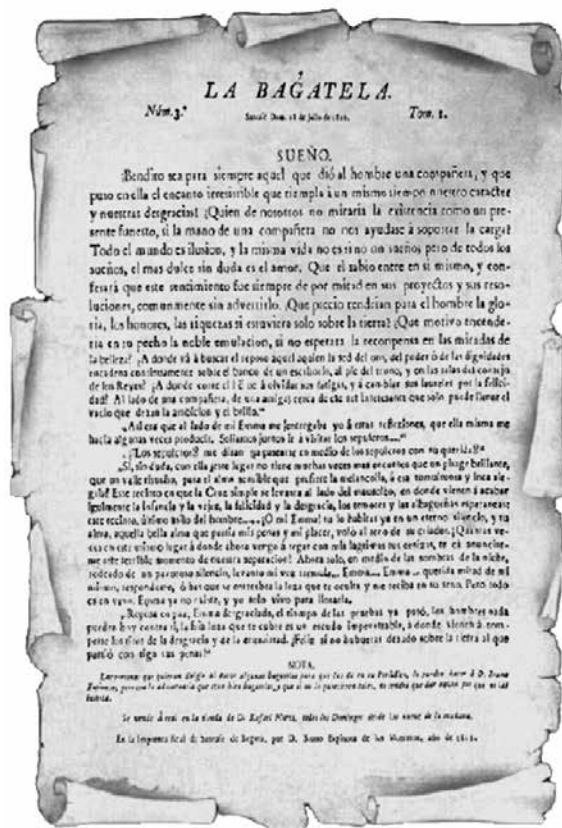 LA BAGATELA.
Núm. 3.º Santafé Dom. 28 de julio de 1811. Tom. 1.
SUEÑO.
¡Bendito sea para siempre aquel que dió al hombre una compañera, y que
puso en ella el encanto irresistible que templa à un mismo tiempo nuestro caracter
y nuestras desgracias! ¡Quien de nosotros no miraria la existencia como un pre-
sente funesto, si la mano de una compañera no nos ayudase à soportar la carga?
Todo el mundo es ilusion, y la misma vida no es sino un sueño; pero de todos los
sueños, el mas dulce sin duda es el amor. Que el sabio entre en si mismo, y con-
fesará que este sentimiento fue siempre de por mitad en sus proyectos y sus reso-
luciones, comunmente sin advertirlo. ¿Que precio tendrian para el hombre la glo-
ria, los honores, las riquezas si estuviera solo sobre la tierra? ¿Que motivo encende-
ria en su pecho la noble emulacion, si no esperara la recompensa en las miradas de
la belleza? ¿A donde vá à buscar el reposo aquel aquien la sed del oro, del poder ó de las dignidades
encadena continuamente sobre el banco de un escritorio, al pie del trono, y en las salas del consejo
de los Reyes? ¿A donde corre el à olvidar sus fatigas, y à cambiar sus laureles por la felici-
dad? Al lado de una compañera, de una amiga; cerca de este ser interesante que solo puede llenar el
vacio que dexan la ambicion y el brillo."
„Asi era que al lado de mi Emma me entregaba yo à estas reflexiones, que ella misma me
hacia algunas veces producir. Soliamos juntos ir à visitar los sepulcros...."
„¿Los sepulcros? me diran ¿pasearse en medio de los sepulcros con su querida?"
„Si, sin duda, con ella este lugar no tiene muchas veces mas encantos que un parage brillante,
que un valle risueño, para el alma sensible que prefiere la melancolia, à esa tumultuosa y loca ale-
gria? Este recinto en que la Cruz simple se levanta al lado del mausoleo, en donde vienen à acabar
igualmente la infancia y la vejez, la felicidad y la desgracia, los temores y las alhagueñas esperanzas:
este recinto, último asilo del hombre..... ¡O mi Emma! tu lo habitas ya en un eterno silencio, y tu
alma, aquella bella alma que partia mis penas y mi placer, voló al seno de su criador. ¡Quantas ve-
ces en este mismo lugar à donde ahora vengo à regar con mis lagrimas tus cenizas, te oi anunciar-
me este terrible momento de nuestra separacion! Ahora solo, en medio de las sombras de la noche,
rodeado de un pavoroso silencio, levanto mi voz tremula... Emma.... Emma... querida mitad de mi
mismo, respondeme, ó haz que se entreabra la loza que te oculta y me reciba en su seno. Pero todo
es en vano, Emma ya no existe, y yo solo vivo para llorarla.
„Reposa en paz, Emma desgraciada, el tiempo de las pruebas ya pasó, los hombres nada
pueden hoy contra ti, la fria loza que te cubre es un escudo impenetrable, à donde vienen à rom-
perse los tiros de la desgracia y de la enemistad. ¡Feliz si no hubieras dexado sobre la tierra al que
partió con tigo sus penas!"
NOTA.
Las personas que quieran dirigir al autor algunas bagatelas para que las dé en su Periódico, lo podrán hacer à D. Bruno
Espinosa, con la advertencia que sean bien bagatelas, y que si no lo parecieren tales, no tendrá que dar razon por que no las
inserta.
Se vende à real en la tienda de D. Rafael Flores, todos los Domingos desde las nueve de la mañana.
En la Imprenta Real de Santafé de Bogotá, por D. Bruno Espinosa de los Monteros, año de 1811.